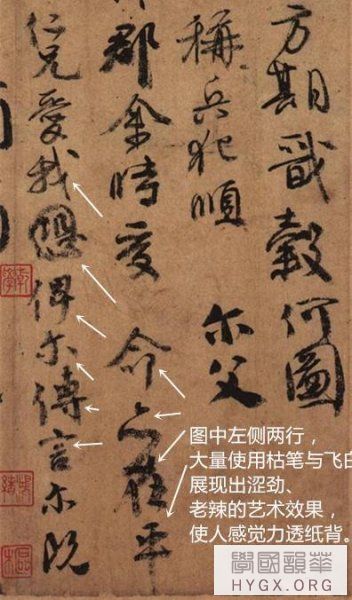 方期戩穀何圖
稱兵犯順 尔父
郡余時受命亦在平
仁兄愛我恐俾尔傳言尔既
图中左侧两行，
大量使用枯笔与飞白
展现出涩劲、
老辣的艺术效果，
使人感觉力透纸背。
華韻國學
HYGX.ORG